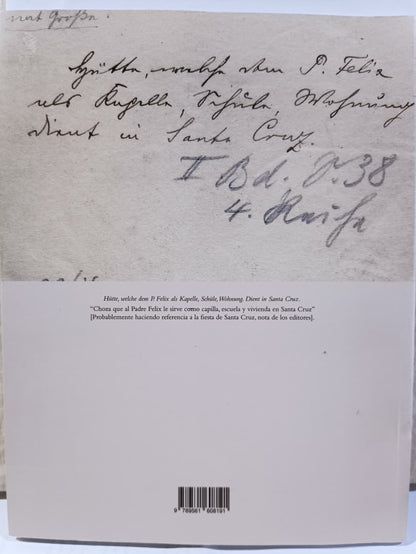 nat. Große.
Hütte, welche dem P. Felix
als Kapelle, Schule, Wohnung
dient in Santa Cruz.
II Bd. S. 38
4. Reihe
Hütte, welche dem P. Felix als Kapelle, Schüle, Wohnung. Dient in Santa Cruz.
“Choza que al Padre Felix le sirve como capilla, escuela y vivienda en Santa Cruz”
[Probablemente haciendo referencia à la fiesta de Santa Cruz, nota de los editores].
9 789561 608191